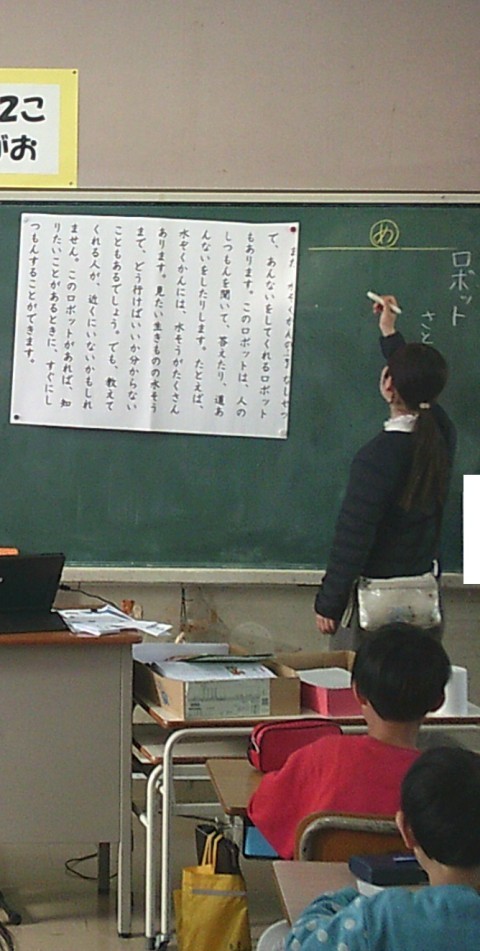 2こ
がお
ロボット
さと
め
て、あんないをしてくれるロボット
もあります。このロボットは、人の
しつもんを聞いて、答えたり、道あ
んないをしたりします。たとえば、
水ぞくかんには、水そうがたくさん
あります。見たい生きものの水そう
まで、どう行けばいいか分からない
こともあるでしょう。でも、教えて
くれる人が、近くにいないかもしれ
ません。このロボットがあれば、知
りたいことがあるときに、すぐにし
つもんすることができます。